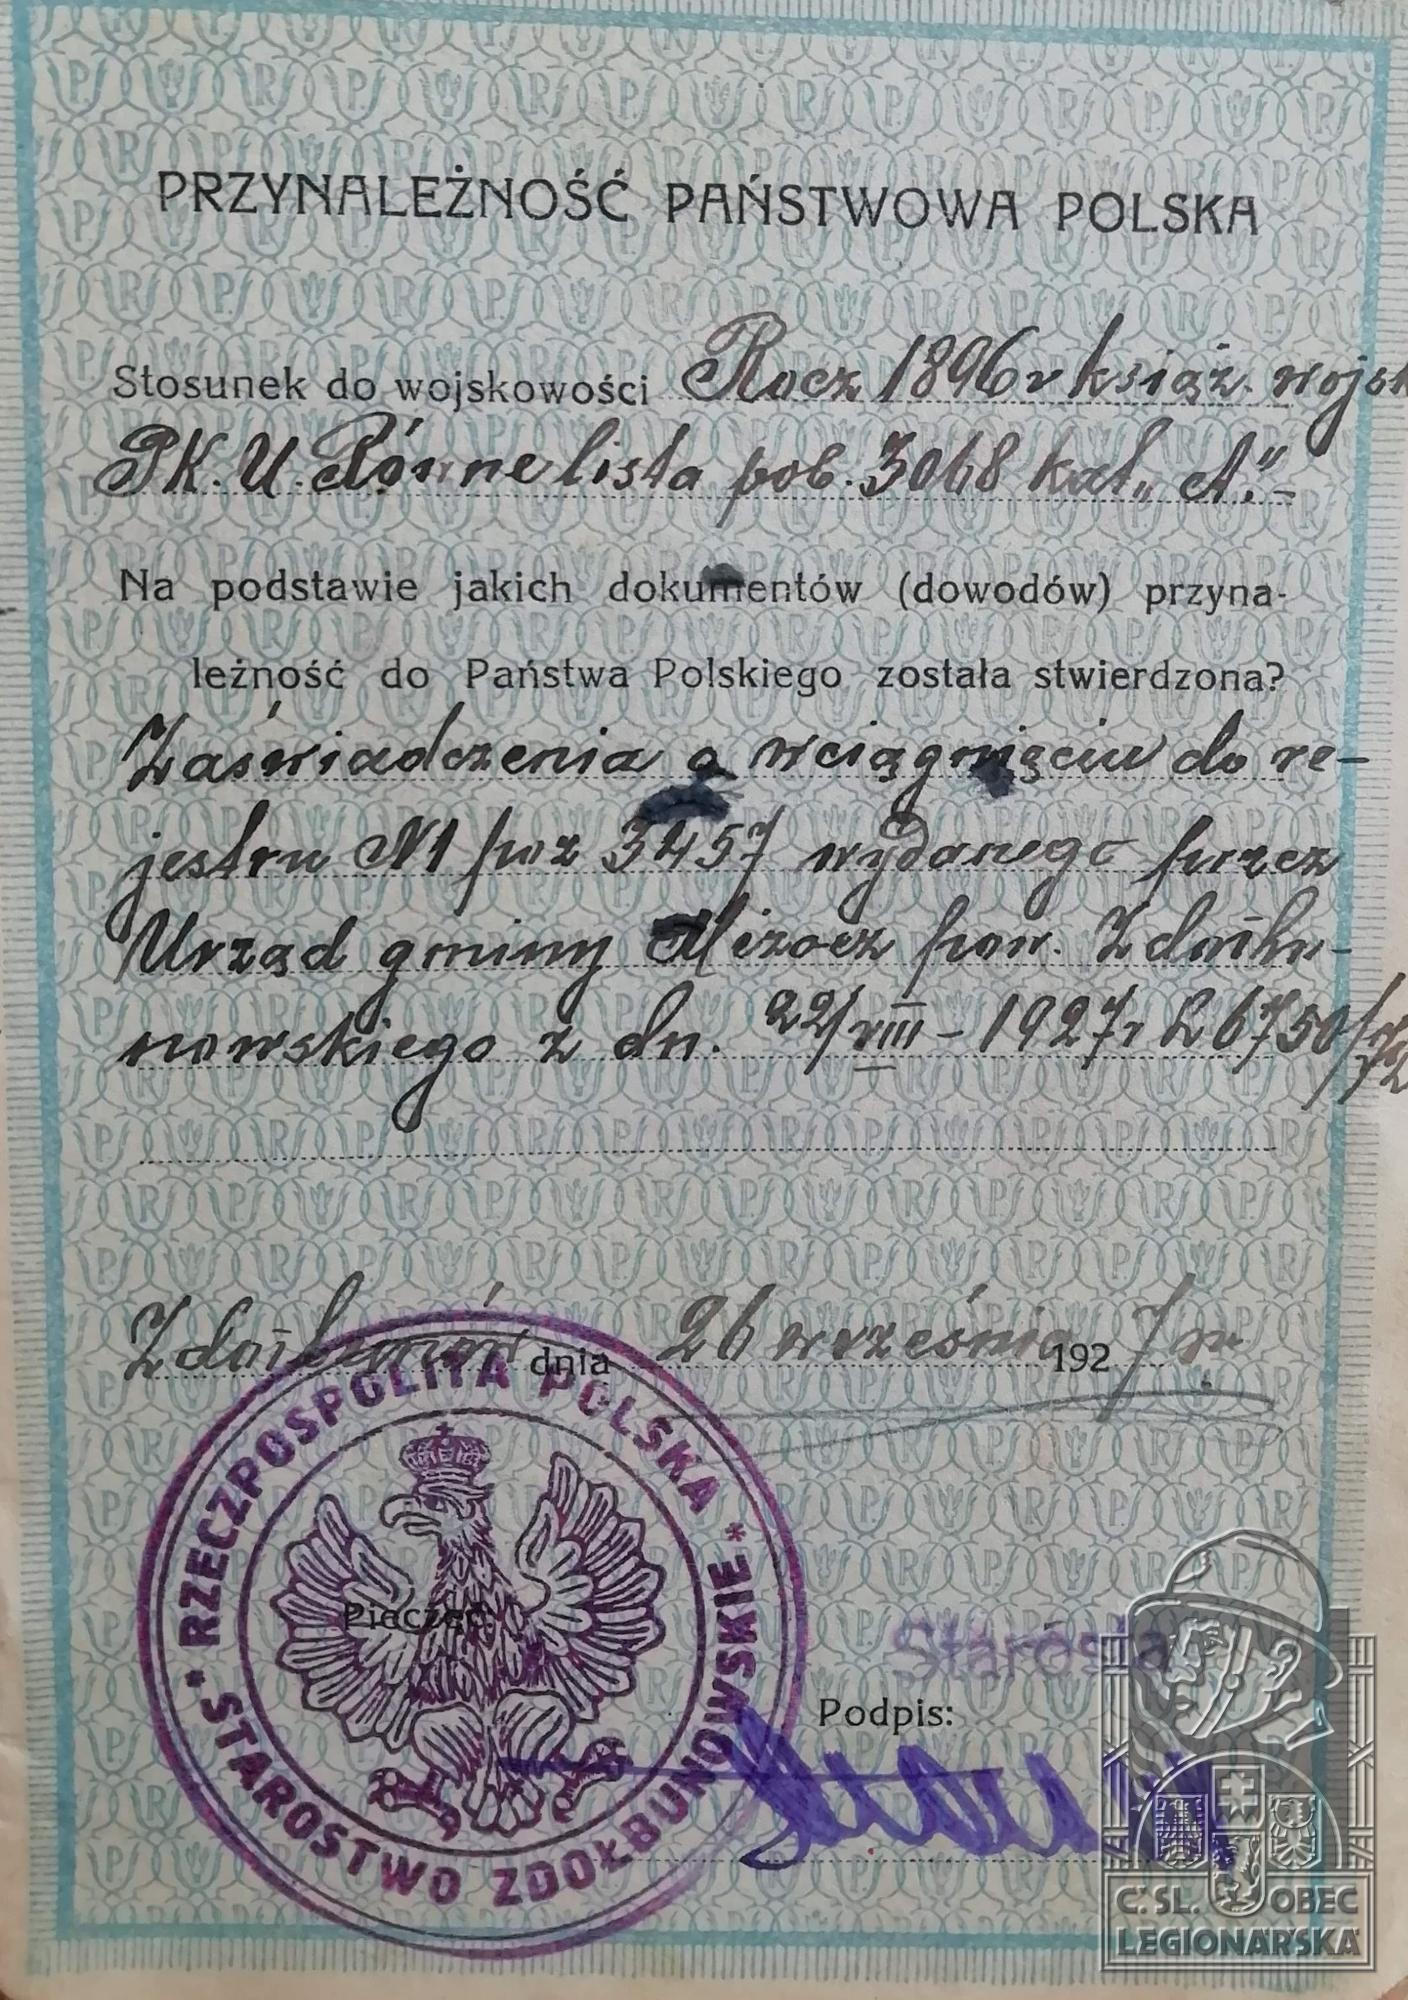 PRZYNALEŻNOŚĆ PAŃSTWOWA POLSKA
Stosunek do wojskowości Rocz 1896 r książ. wojsk
P.K.U. Równe lista pob. 3068 kat „A".-
Na podstawie jakich dokumentów (dowodów) przyna-
leżność do Państwa Polskiego została stwierdzona?
Zaświadczenia o wciągnięciu do re-
jestru N1 poz 3457 wydanego przez
Urząd gminy Mizocz pow. Zdołbu-
nowskiego z dn. 22/VIII-1927 r L 6750
Zdołbunów dnia 26 września 1927 r.
RZECZPOSPOLITA POLSKA
* STAROSTWO ZDOŁBUNOWSKIE *
Pieczęć:
Starosta
Podpis:
Č.SL. OBEC
LEGIONÁŘSKÁ